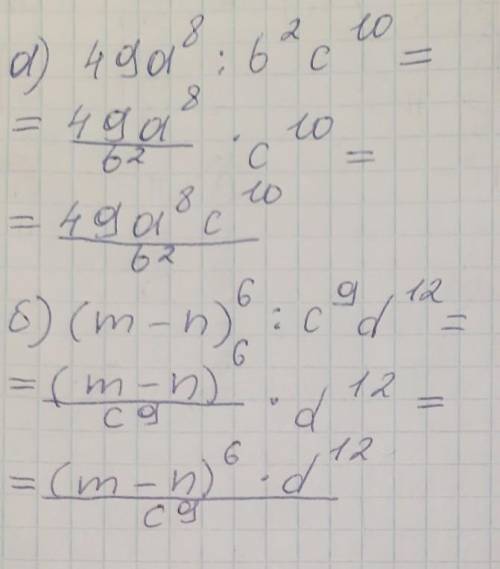 а) 49a⁸ : b²c¹⁰ =
= 49a⁸/b² · c¹⁰ =
= 49a⁸c¹⁰/b²
б) (m − n)⁶ : c⁹d¹² =
= (m − n)⁶/c⁹ · d¹² =
= (m − n)⁶ · d¹²/c⁹